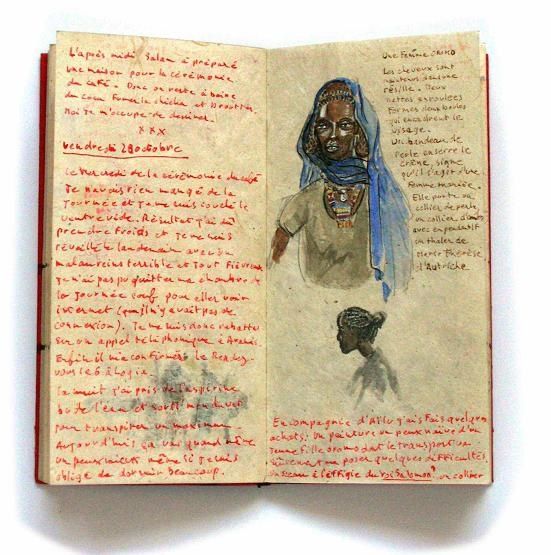 L'après midi Salam a préparé
une maison pour la cérémonie
du café. Donc on reste à boire
du café Fumer la chicha et Brouter.
Moi Je m'occupe de dessiner.
x x x
Vendredi 28 octobre
Le Vendredi de la cérémonie du café
Je n'avais rien mangé de la
Journée et Je me suis couché le
ventre vide. Résultat j'ai dû
prendre froids et Je me suis
réveillé le lendemain avec un
mal aux reins terrible et tout fiévreux
Je n'ai pas pu quitter ma chambre de
la Journée sauf pour aller voir
internet (mais il n'y avait pas de
connexion). Je me suis donc rabattu
sur un appel téléphonique à
Enfin il m'a confirmé le Rendez-
vous le 6
La nuit j'ai pris de l'aspirine
bu de l'eau et
pour transpirer un maximum
Aujourd'hui ça va quand même
un peu mieux même si Je suis
obligé de dormir beaucoup.
Une Femme OROMO
Les cheveux sont
maintenus dans une
résille. Deux
nattes enroulées
Formes deux boules
qui encadrent le
visage.
Un bandeau de
Perle enserre le
crâne, signe
qu'il s'agit d'une
Femme mariée.
Elle porte un
collier de perle,
un collier d'ambre
avec en pendentif
un thaler de
Marie Thérèse
d'Autriche.
En compagnie d'Aïlu j'ais Fais quelques
achats; un peinture un peux naïve d'une
Jeune Fille oromo dont le transport va
sûrement me poser quelques difficultés,
un sceau à l'effigie du roi Salomon, un collier